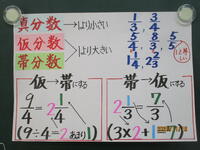 真分数→1より小さい 1/3, 3/4
仮分数 5/4, 8/3, 5/5
帯分数 →1より大きい 1と等しい
1 1/4, 2 2/3
仮→帯にする
9/4=2 1/4
(9÷4=2あまり1)
帯→仮にする
2 1/3=7/3
(3×2+1=7)